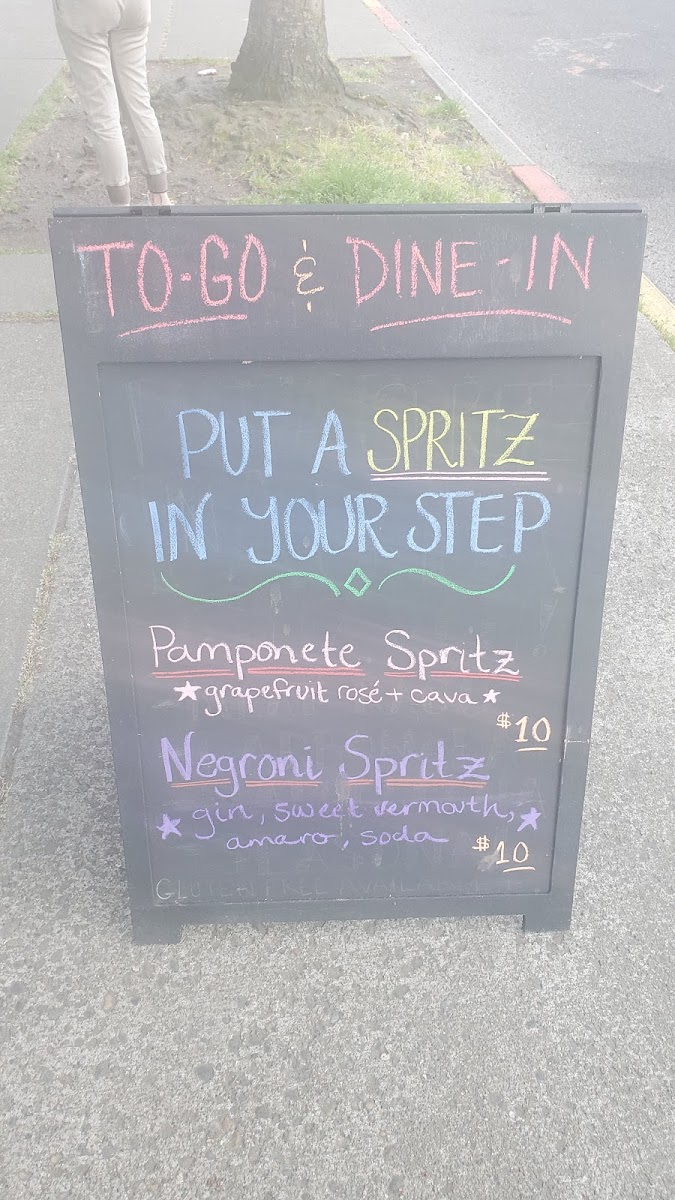 TO-GO & DINE-IN
PUT A SPRITZ
IN YOUR STEP
Pamponete Spritz
★grapefruit rosé + cava★
$10
Negroni Spritz
★ gin, sweet vermouth, ★
amaro, soda
$10
GLUTEN FREE AVAILABLE